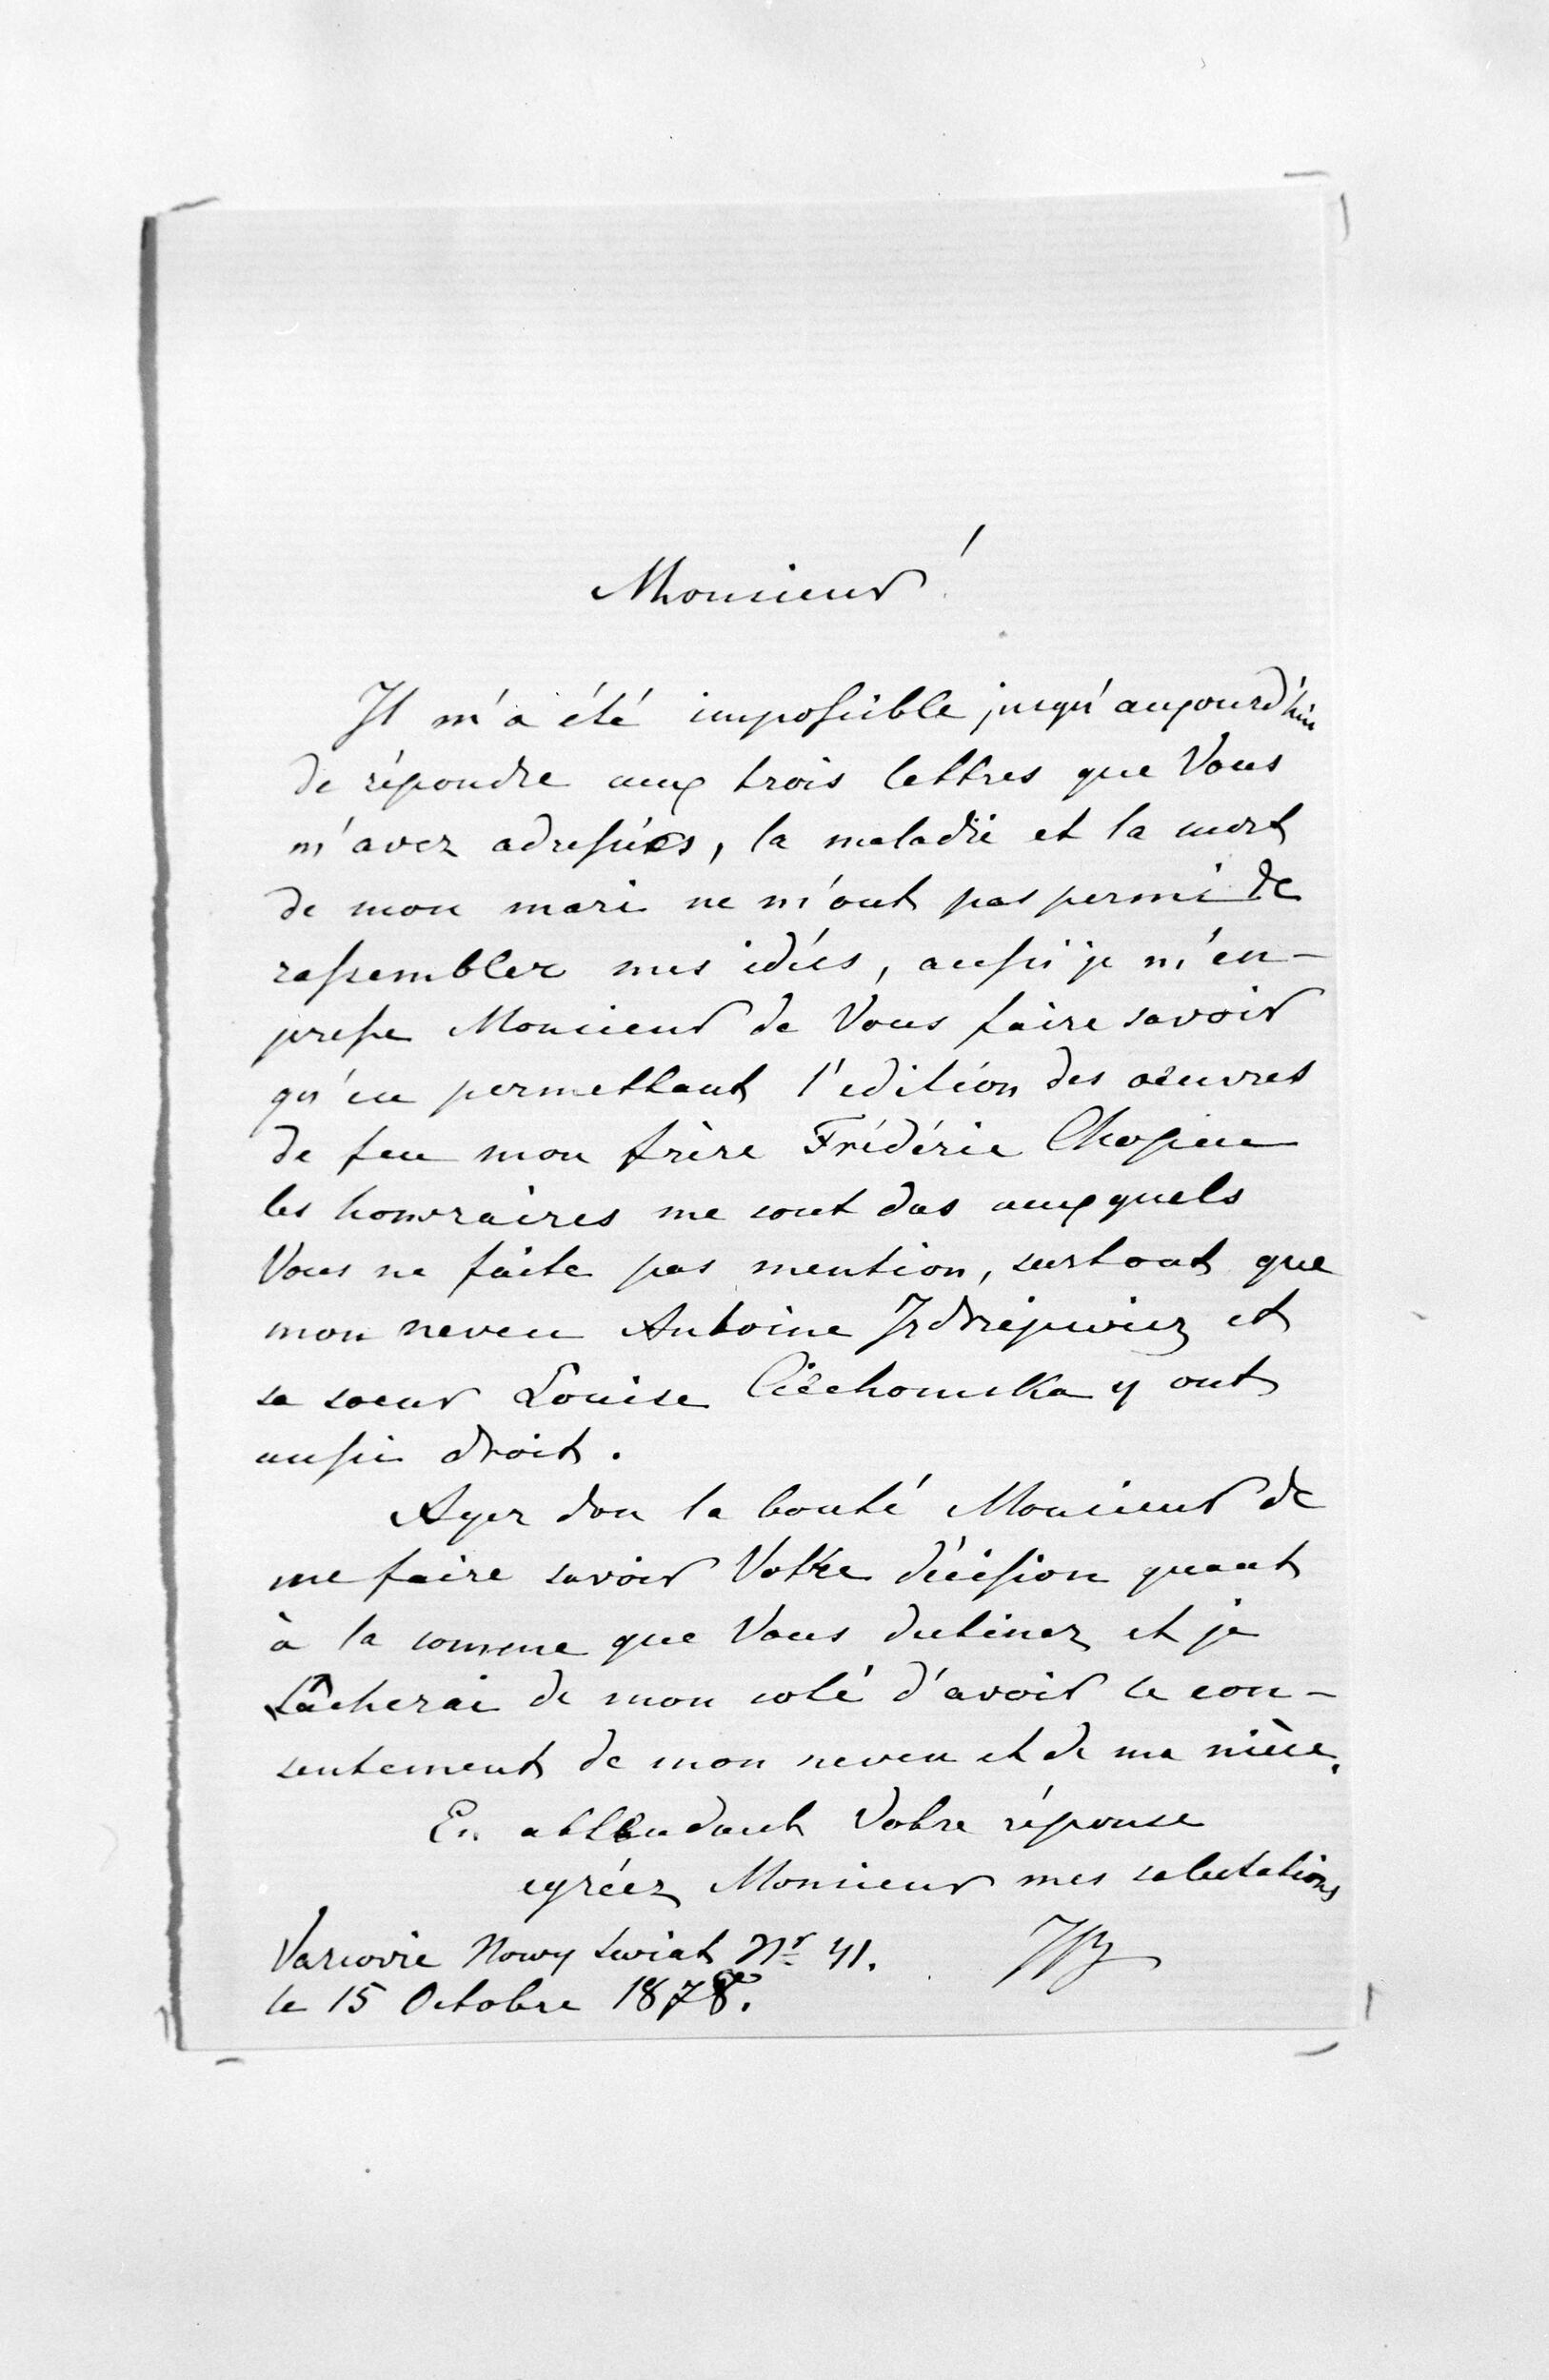 Monsieur!
Il m'a été impossible jusqu'aujourd'hui
de répondre aux trois lettres que Vous
m'avez adressées, la maladie et la mort
de mon mari ne m'ont pas permi de
rassembler mes idées, aussi je m'en-
presse Monsieur de Vous faire savoir
qu'en permettant l'edition des oeuvres
de feu mon frère Frédéric Chopin
les honoraires me sont dus auxquels
Vous ne faite pas mention, surtout que
mon neveu Antoine Jedrzejewicz et
sa soeur Louise Ciechomska y ont
aussi droit.
Ayez don la bonté Monsieur de
me faire savoir Votre décission quant
à la somme que Vous destinez et je
tâcherai de mon coté d'avoir le con-
sentement de mon neveu et de ma nièce.
En attendant Votre réponse
agréez Monsieur mes salutations
Varsovie Nowy Swiat Nr 41. JB
le 15 Octobre 1878.